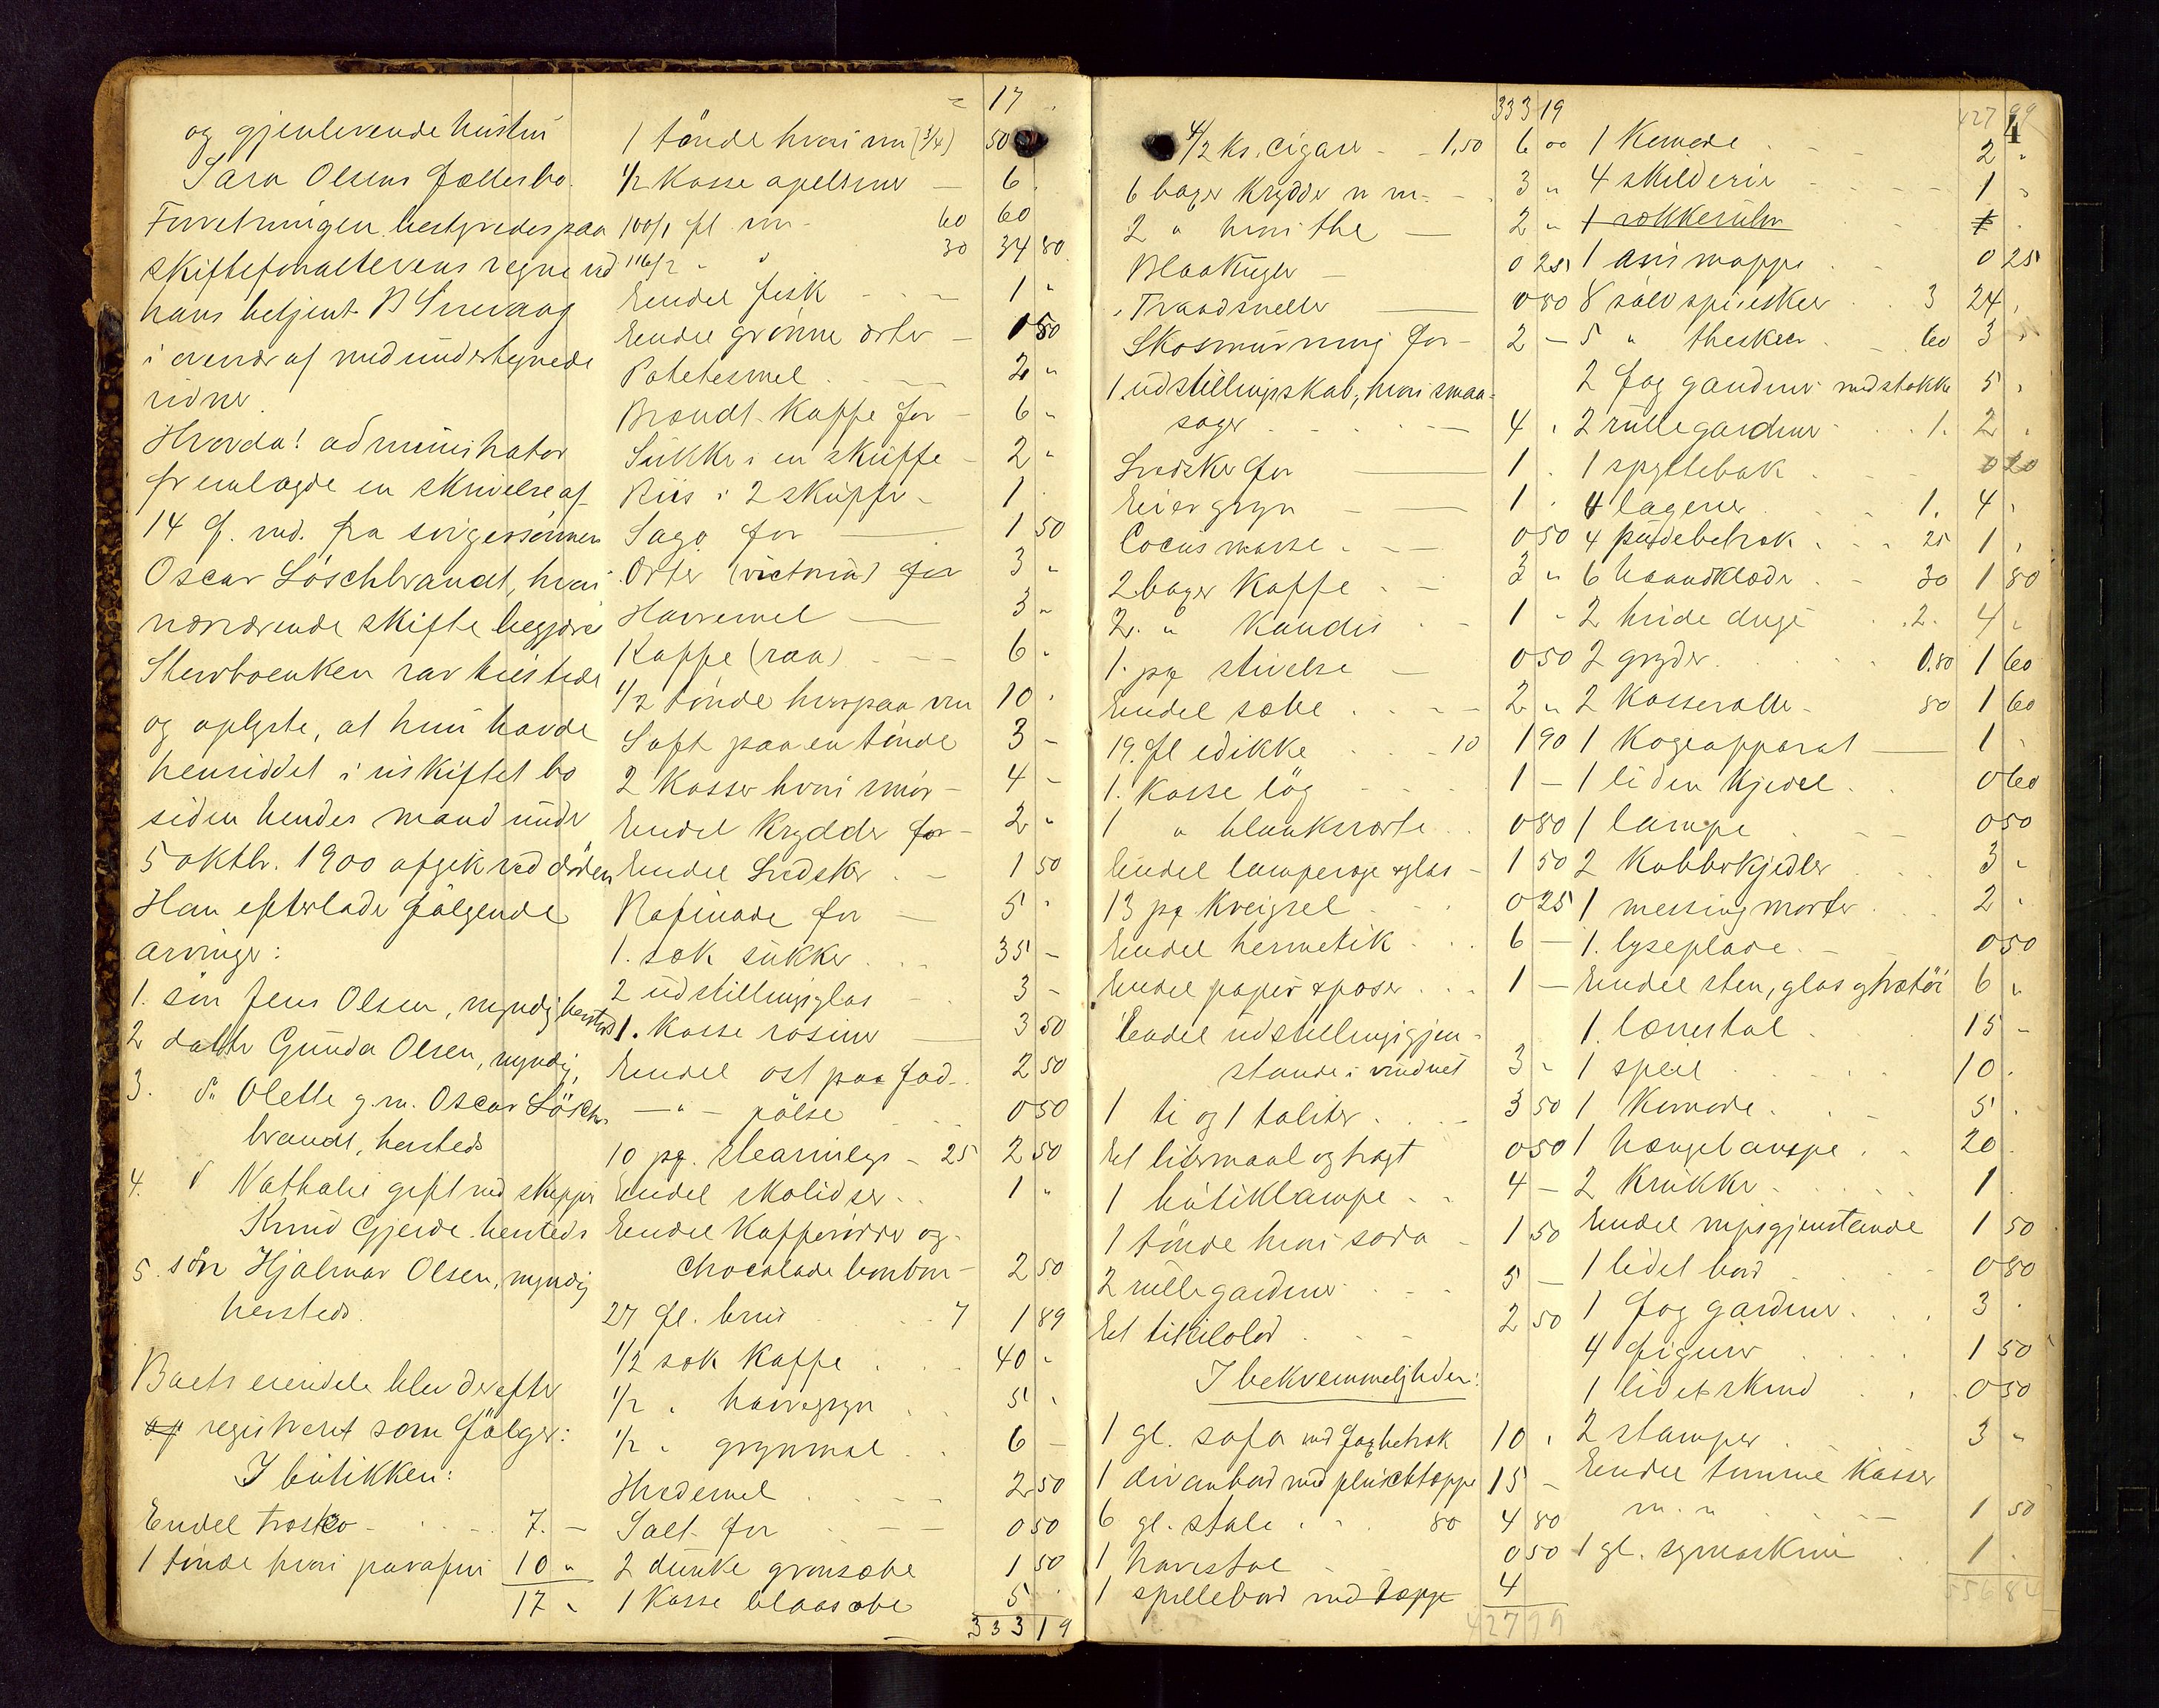 og gjenlevende hustru
Sara Olsens fællesbo.
Forretningen bestyredes paa
skifteforvalterens vegne ved
hans betjent B
i overvær af medundertegnede
vidner.
Hvorda! administrator
fremlagde en skrivelse af
14 f. md. fra svigersønnen
Oscar Löschbrandt, hvori
nærværende skifte begjæres
Sterboenken var tilstede
og oplyste, at hun havde
hensiddet i uskiftet bo
siden hendes mand under
5 oktbr. 1900 afgik ved døden
Han efterlader følgende
arvinger:
1. søn Jens Olsen, myndig hersteds
2 datter Gunda Olsen, myndig,
3. d. Olette g. m. Oscar Lösch-
brandt, hersteds
4. d Nathalie gift med skipper
Knud Gjerde hersteds
5. søn Hjalmar Olsen, myndig
hersteds.
Boets eiendele blev derefter
registreret som følger:
I butikken:
Endel træsko - 7. -
1 tønde hvori parafin 10 "
17 "
17 .
1 tønde hvori vin (3/4) 50
1/2 kasse apelsiner - 6 .
100/1 fl vin - 60 60
116/2 " " 30 34 80
Endel fisk - 1 "
Endel grønne erter - 1 50
Potetesmel 2 "
Brændt kaffe for - 6 "
Sukker i en skuffe - 2 "
Riis i 2 skuffer - 1 .
Sago for - 1 50
Erter (victoria) for 3 "
Havremel - 3 "
Kaffe (raa) - 6 "
1/2 tønde hvorpaa vin 10 "
Saft paa en tønde 3 -
2 kasser hvori smør - 4 -
Endel krydder for - 2 "
Endel Svedsker - 1 50
Rafinade for - 5 "
1. sæk sukker 35 -
2 udstillingsglas - 3 -
1. kasse rosiner 3 50
Endel ost paa fad 2 50
- " - pølse 0 50
10 pg. stearinlys - 25 2 50
Endel skolidser 1 "
Endel kaffe og
chocolade bonbon - 2 50
27 fl. brus 7 1 89
1/2 sæk kaffe 40 "
1/2 " havregryn 5 "
1/2 " grynmel 6 -
Hvedemel 2 50
Salt for 0 50
2 dunke grønsæbe 1 50
1 kasse blaasæbe 5 .
333 19
333 19
4/2 ks. cigarer - 1,50 6 00
6 bøger krydder m m. - 3 "
2 " hvori the - 2 "
Blaakugler - 0 25
Traadsneller 0 80
Skosmurning for - 2 -
1 udstillingsskab, hvori smaa-
sager 4 "
Svedsker for 1 .
Eiergryn 1 .
Cocusmasse 0 50
2 bøger kaffe 3 "
2. " kandis 1 "
1. pg stivelse 0 50
Endel sæbe 2 "
19. fl edikke 10 1 90
1. kasse løg 1 -
1 " blanksværte 0 80
Endel lampevæge & glas - 1 50
13 pg kveigsel 0 25
Endel hermetik 6 -
Endel papir & poser 1 -
Endel udstillingsgjen-
stande i vinduet 3 "
1 ti og 1 toliter 3 50
Et litermaal og tragt 0 50
1 butiklampe 4 -
1 tønde hvori soda 1 50
2 rullegardiner 3 -
Et 2 50
I bekvemmeligheden:
1 gl. sofa med fløgbetræk 10 "
1 divanbord med pluschtæppe 15 -
6 gl. stole 80 4 80
1 0 50
1 spillebord med tæppe 4
427 99
427 99
4
1 Komode 2 "
4 skilderier 1 "
1 1
1 avismappe 0 25
8 sølv spiseskeer 3 24 "
5 " theskeer 60 3 "
2 fag gardiner med stokke 5 "
2 rullegardiner 1. 2 "
1 spyttebak 0 20
4 lagener 1. 4 "
4 pudebetræk 25 1 "
6 haandklæder 30 1 80
2 hvide duge 2. 4 "
2 gryder 0.80 1 60
2 kasseroller 80 1 60
1 kogeapparat 1 "
1 liden kjedel 0 60
1 lampe 0 50
2 kobberkjedler 3 "
1 messingmorter 2 "
1. lyseplade 0 50
Endel sten, glas og trætøi 6 "
1. lænestol 15 -
1 speil 10 .
1 Komode 5 .
1 hængelampe 20 .
2 krukker 1 .
Endel nipsgjenstande 1 50
1 lidet bord 0 80
1 fag gardiner 3 .
4 figurer 1 50
1 lidet skind 0 50
2 stamper 3 "
Endel tomme kasser
m. m 1 50
1 gl. symaskine 1 .
556 84